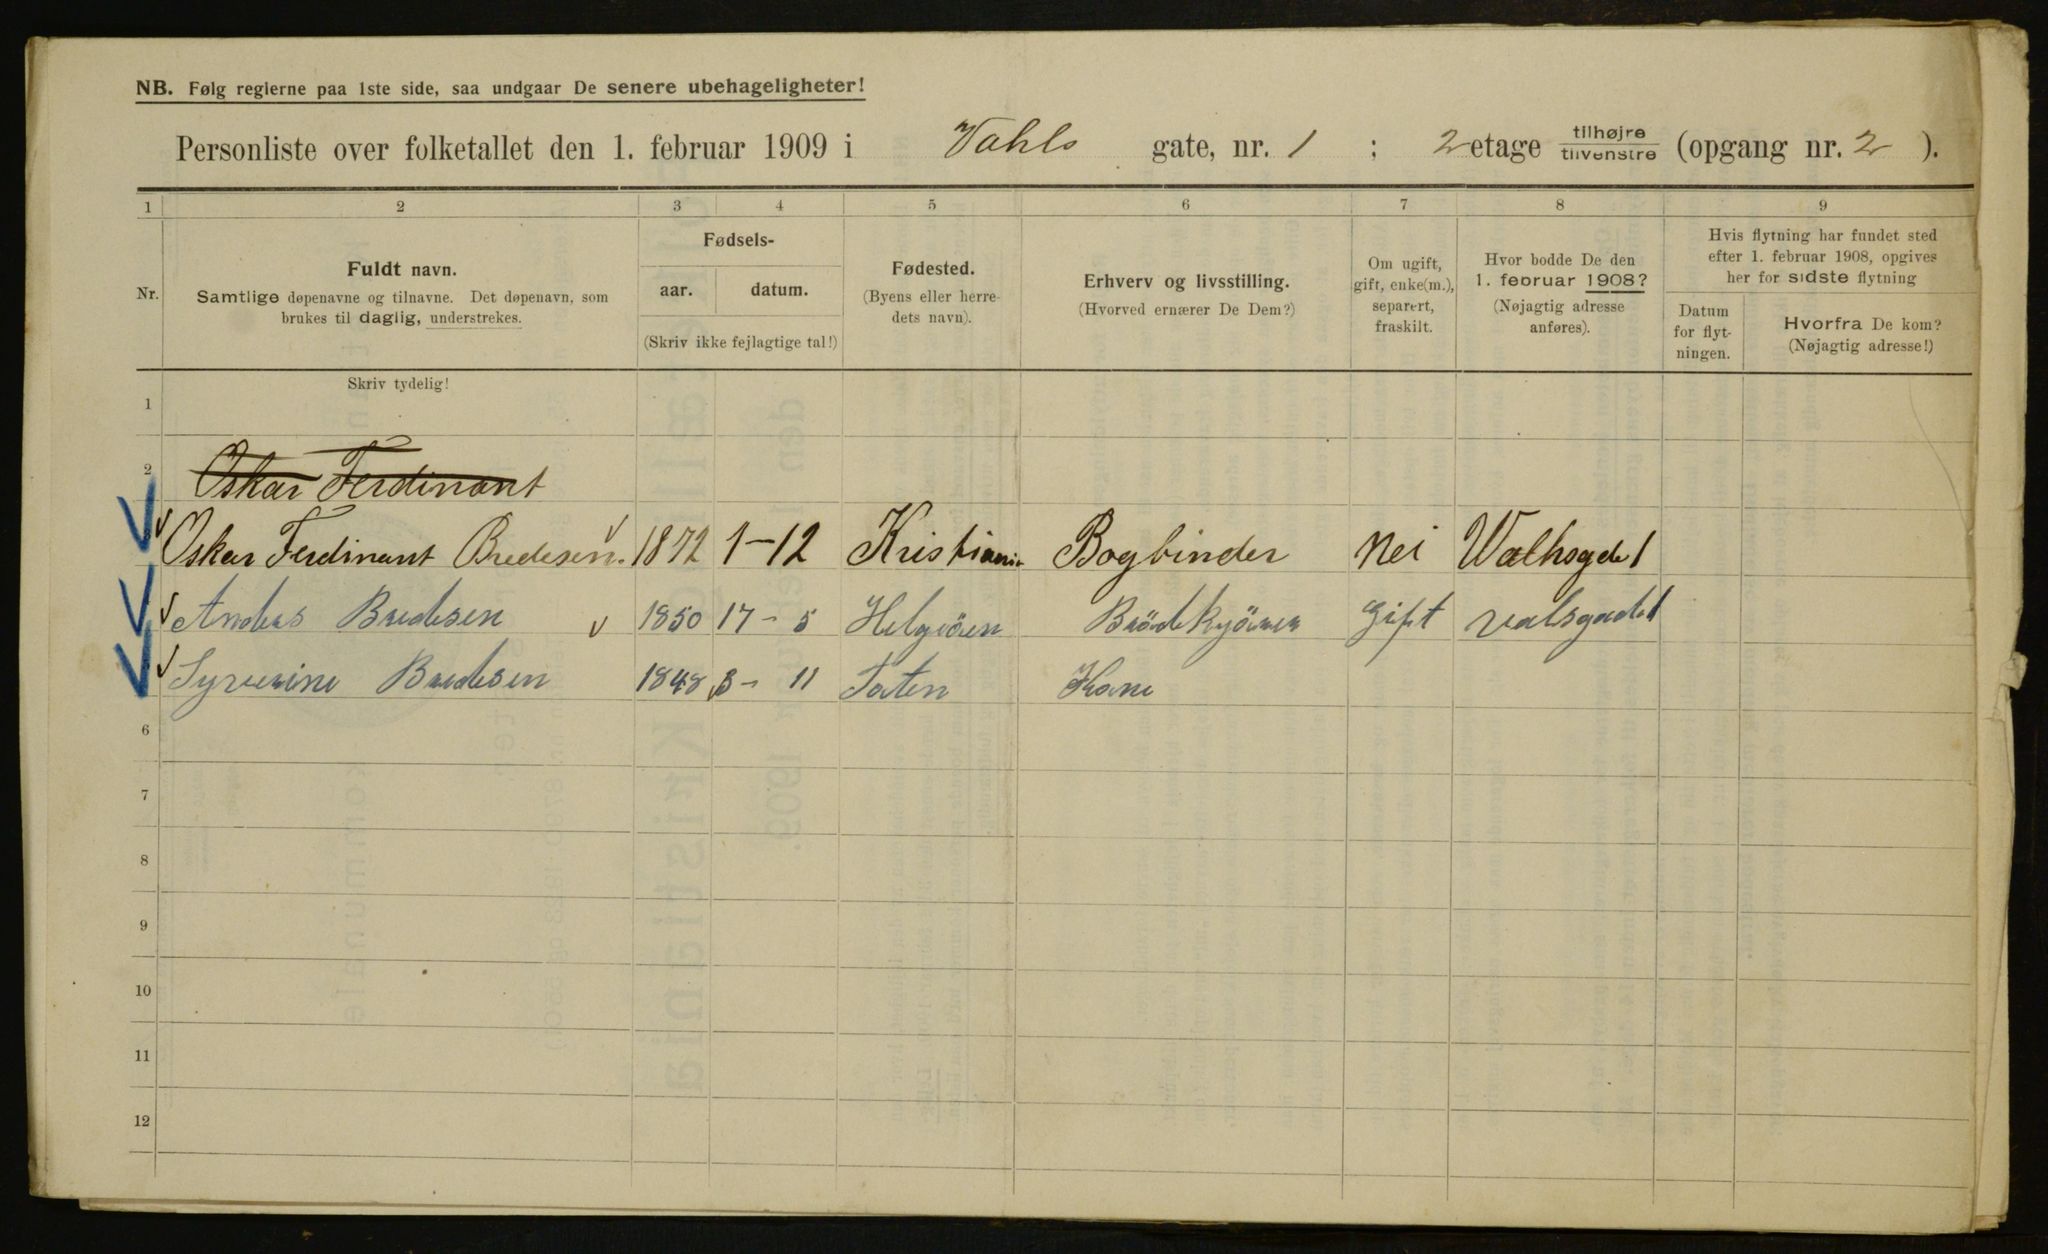 NB. Følg reglerne paa 1ste side, saa undgaar De senere ubehageligheter!
Personliste over folketallet den 1. februar 1909 i Vahls gate, nr. 1 ; 2 etage tilhøjre tilvenstre (opgang nr. 2 ).
1 2 3 4 5 6 7 8 9
Nr.
Fuldt navn.
Samtlige døpenavne og tilnavne. Det døpenavn, som
brukes til daglig, understrekes.
Fødsels-
aar. datum.
(Skriv ikke fejlagtige tal!)
Fødested.
(Byens eller herre-
dets navn).
Erhverv og livsstilling.
(Hvorved ernærer De Dem?)
Om ugift,
gift, enke(m.),
separert,
fraskilt.
Hvor bodde De den
1. februar 1908?
(Nøjagtig adresse
anføres).
Hvis flytning har fundet sted
efter 1. februar 1908, opgives
her for sidste flytning
Datum
for flyt-
ningen.
Hvorfra De kom?
(Nøjagtig adresse!)
Skriv tydelig!
1
2 Oskar Ferdinant
Oskar Ferdinant Bredesen. 1872 1-12 Kristiania Bogbinder Nei Walhsgde 1
Anders Bredesen 1850 17-5 Helgöen Brödkjörer gift valsgade 1
Syverine Bredesen 1848 3-11 Toten Kone
6
7
8
9
10
11
12